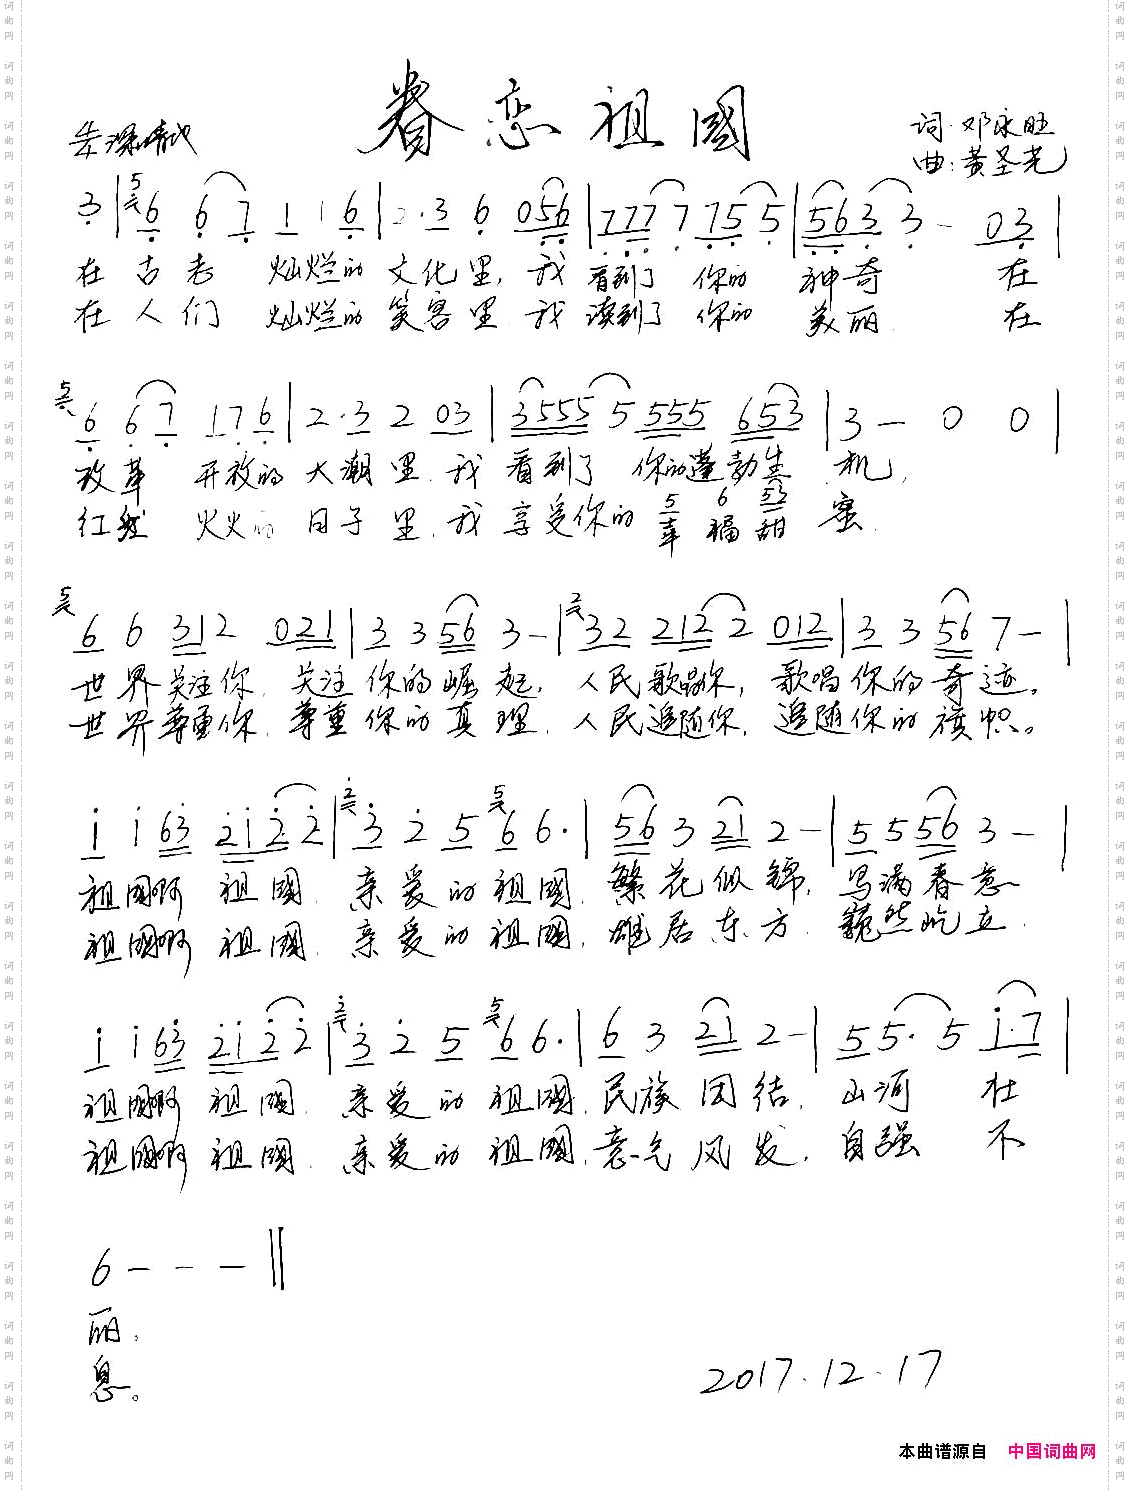 眷恋祖國
词：邓永旺
曲：黄圣光
3 | 6 6 7 1 1 6 | 2·3 6 056 | 777 7 775 5 | 563 3 - 03 |
在古老 灿烂的文化里，我看到了 你的 神奇 在
在人们 灿烂的笑容里 我读到了 你的 美丽 在
6 6 7 176 | 2·3 2 03 | 3555 5 555 653 | 3 - 0 0 |
改革 开放的大潮里 我看到了 你的蓬勃生机，
5 6 53
红红火火的日子里，我享受你的幸福甜蜜
6 6 312 021 | 3 3 56 3 - | 32 212 2 012 | 3 3 56 7 - |
世界关注你 关注你的崛起，人民歌唱你，歌唱你的奇迹。
世界尊重你 尊重你的真理，人民追随你，追随你的旗帜。
1 1 63 212 2 | 3 2 5 6 6· | 56 3 21 2 - | 5 5 56 3 - |
祖国啊 祖國 亲爱的祖國 繁花似锦，写满春意
祖国啊 祖國 亲爱的祖國，雄居东方 巍然屹立
1 1 63 212 2 | 3 2 5 6 6· | 6 3 21 2 - | 5 5· 5 1·7 |
祖國啊 祖國 亲爱的祖國，民族团结，山河 壮
祖國啊 祖國 亲爱的祖國，意气风发，自强 不
6 - - - ‖
丽，
息。
2017.12.17
本曲谱源自 中国词曲网